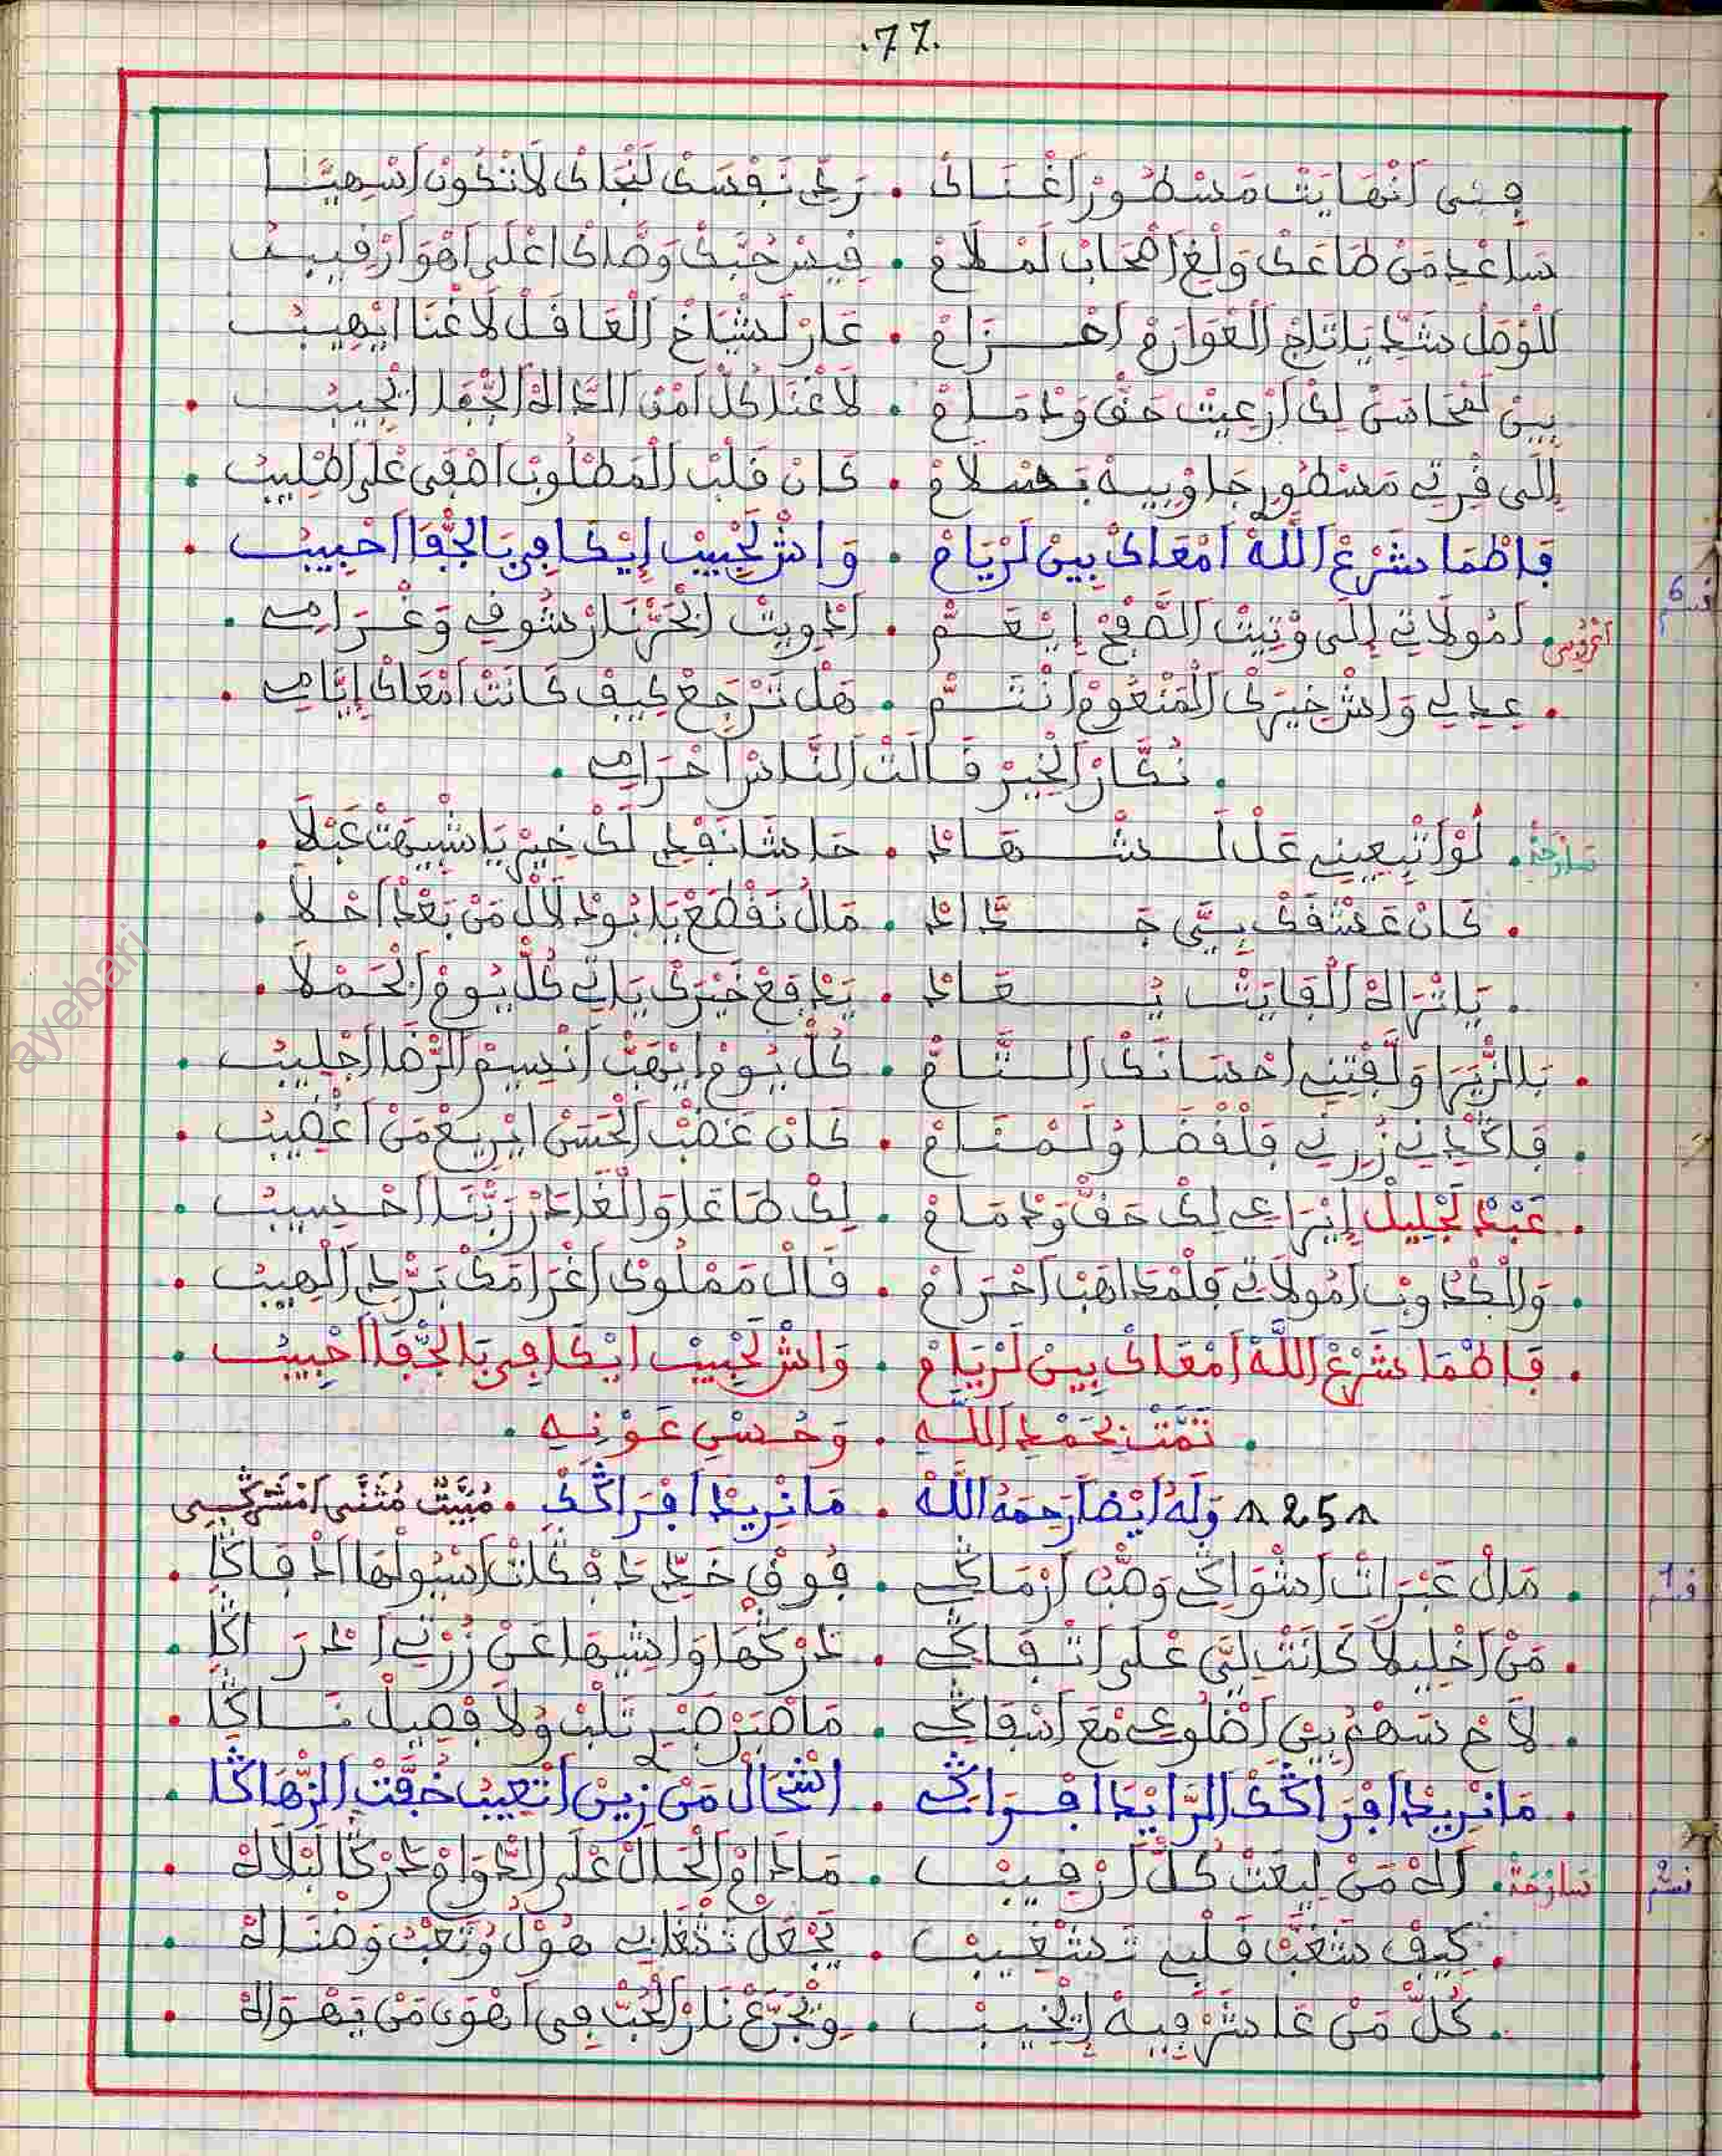 .77.
فِيمَى اَنْهَايَتْ مَسْطُورْ اَغْنَاكْ . رَدِّي نَفْسَكْ لَنْجَاكْ لَا تْكُونْ اَسْهِيتَا
سَاعْدِي مَنْ طَاعَكْ وَلْغِ اَصْحَابْ لَمْلَامْ . فِيسْ حُبَّكْ وَصَّاكْ اعْلَى اَهْوَ اَرْقِيبْ
لَلْوْصَلْ شَدِّ يَا تَاجْ الْعَوَارَمْ اَحْزَامْ . عَارْ لَشْيَاخْ الْعَاقَلْ لَا غْنَا اِيْهِيبْ
بِينْ لَمْحَاسَنْ لِكْ اَرْعِيتْ حَقْ وَدْمَامْ . لَا غْنَا كُلْ اَمْنْ اَلدَّاكْ الجّْفَا اِيْجِيبْ
إِلَى قْرِيتِ مَسْطُورِ جَاوْبِيهْ بَسْلَامْ . كَانْ قَلْبْ الْمَطْلُوبْ اَصْفَى عْلَى اَطْلِيبْ
فَاطْمَا شَرْعْ اللَّهْ اَمْعَاكْ بِينْ لَرْيَامْ . وَاشْ لَحْبِيبْ اِيْكَافِي بَالجّْفَا اَحْبِيبْ
قسم 6
اَعْرُوبِي . اَمُولَاتِي إِلَى وْتِيتْ الصَّفْحْ اِيْنْعَمْ . اَدْوِيتْ الْحَرْ نَارْ شُوقِي وَغْرَامِي .
. عِيدِي وَاشْ خِيرَكْ الْمَنْعُومْ اَنْتَمْ . هَلْ تَرْجَعْ كِيفْ كَانَتْ اَمْعَاكْ اِيَّامِي .
. نُكَّارْ الْخِيرْ قَالَتْ النَّاسْ اَحْرَامِي .
سَارْحَة . لَوْ اتْبِيعِينِي عَلْ لَشْهَادْ . حَاشَا نَفْدِي لَكْ خِيرْ يَا شْبِيهَتْ عَبْلَا .
. كَانْ عَشْقَكْ بِيَّ جَدَّادْ . مَالْ نَقْطَعْ يَا بُودْلَالْ مَنْ بَعْدْ اَحْلَا .
. يَا تْرَاكْ الْفَايَتْ يُعَادْ . يَدْفَعْ خَيْرَكْ يَاتِي كُلْ يُومْ الْحَمْلَا .
. بَالزّْيَرَا وَلَّفْتِينِي اَحْسَانَكْ التَّامْ . كُلْ يُومْ اِيْهَبْ اَنْسِيمْ الرّْضَا اَجْلِيبْ .
. فَاكْدِينِي زُرْنِي فَلْفْضَا وُلَمْنَامْ . كَانْ غَضْبْ الْحَسْنْ اِيْرِيعْ مَنْ اَغْضِيبْ .
. عَبْدْ لَجْلِيلْ اِيْرَاعِي لِكْ حَقْ وَدْمَامْ . لِكْ طَاعَا وَالْغَادَرْ رَبَّنَا اَحْسِيبْ .
. وَالْكْدُوبْ اَمُولَاتِي فَلْمْدَاهَبْ اَحْرَامْ . قَالْ مَمْلُوكْ اَغْرَامَكْ بَرّْدِي اَلْهِيبْ .
. فَاطْمَا شَرْعْ اللَّهْ اَمْعَاكْ بِينْ لَرْيَامْ . وَاشْ لَحْبِيبْ اِيْكَافِي بَالجّْفَا اَحْبِيبْ .
. تَمَّتْ بِحَمْدِ اللَّهِ . وَحُسْنِ عَوْنِهِ .
25 وَلَهُ اَيْضاً رَحِمَهُ اللَّهْ . مَا نْرِيدْ اَفْرَاݣَكْ . مُبَيَّتْ مُثَنَّى اَمْشَرْݣِي
ق 1
. مَالْ عَبْرَاتْ اَشْوَاݣِي وَصْبْ اَرْمَاݣِي . فُوقْ خَدِّي دَفْݣَاتْ اَسْيُولْهَا اَدْفَاݣَا .
. مَنْ اَخْلِيلَا كَانَتْ لِيَّ عْلَى اَتْفَاݣِي . دَرْكْهَا وَاشِيهَا عَنْ زُرْتِي اَدْرَاݣَا .
. لَاحْ سَهْمُ بِينْ اَضْلُوعِي مْعَ اَسْقَاݣِي . مَا صْبَرْ صْبْرِ تَلْبْ وُلَا فْصِيلْ نَاݣَا .
. مَا نْرِيدْ اَفْرَاݣَكْ الرَّايْدَا اَفْرَاݣِي . اَشْحَالْ مَنْ زِينْ اَتْعِيبْ خُفَّتْ الزّْهَاݣَا .
قسم 2
سَارْحَةْ . اَكْ مَنْ لِيعَتْ كُلْ اَرْقِيبْ . مَادَامْ الْحَالْ عْلَى الدّْوَامْ دَرْكَا لَبْلَاكْ .
. كِيفْ شَغَّبْ قَلْبِي تَشْغِيبْ . يَجْعَلْ تَشْغَابِي هُوْلْ وُتَعْبْ وَضْنَاكْ .
. كُلْ مَنْ عَاشَرْ فِيهْ اِيْخِيبْ . وِيْجَرَّعْ نَارْ الْحُبْ فِي اَهْوَى مَنْ يَهْوَاكْ .
ayebari